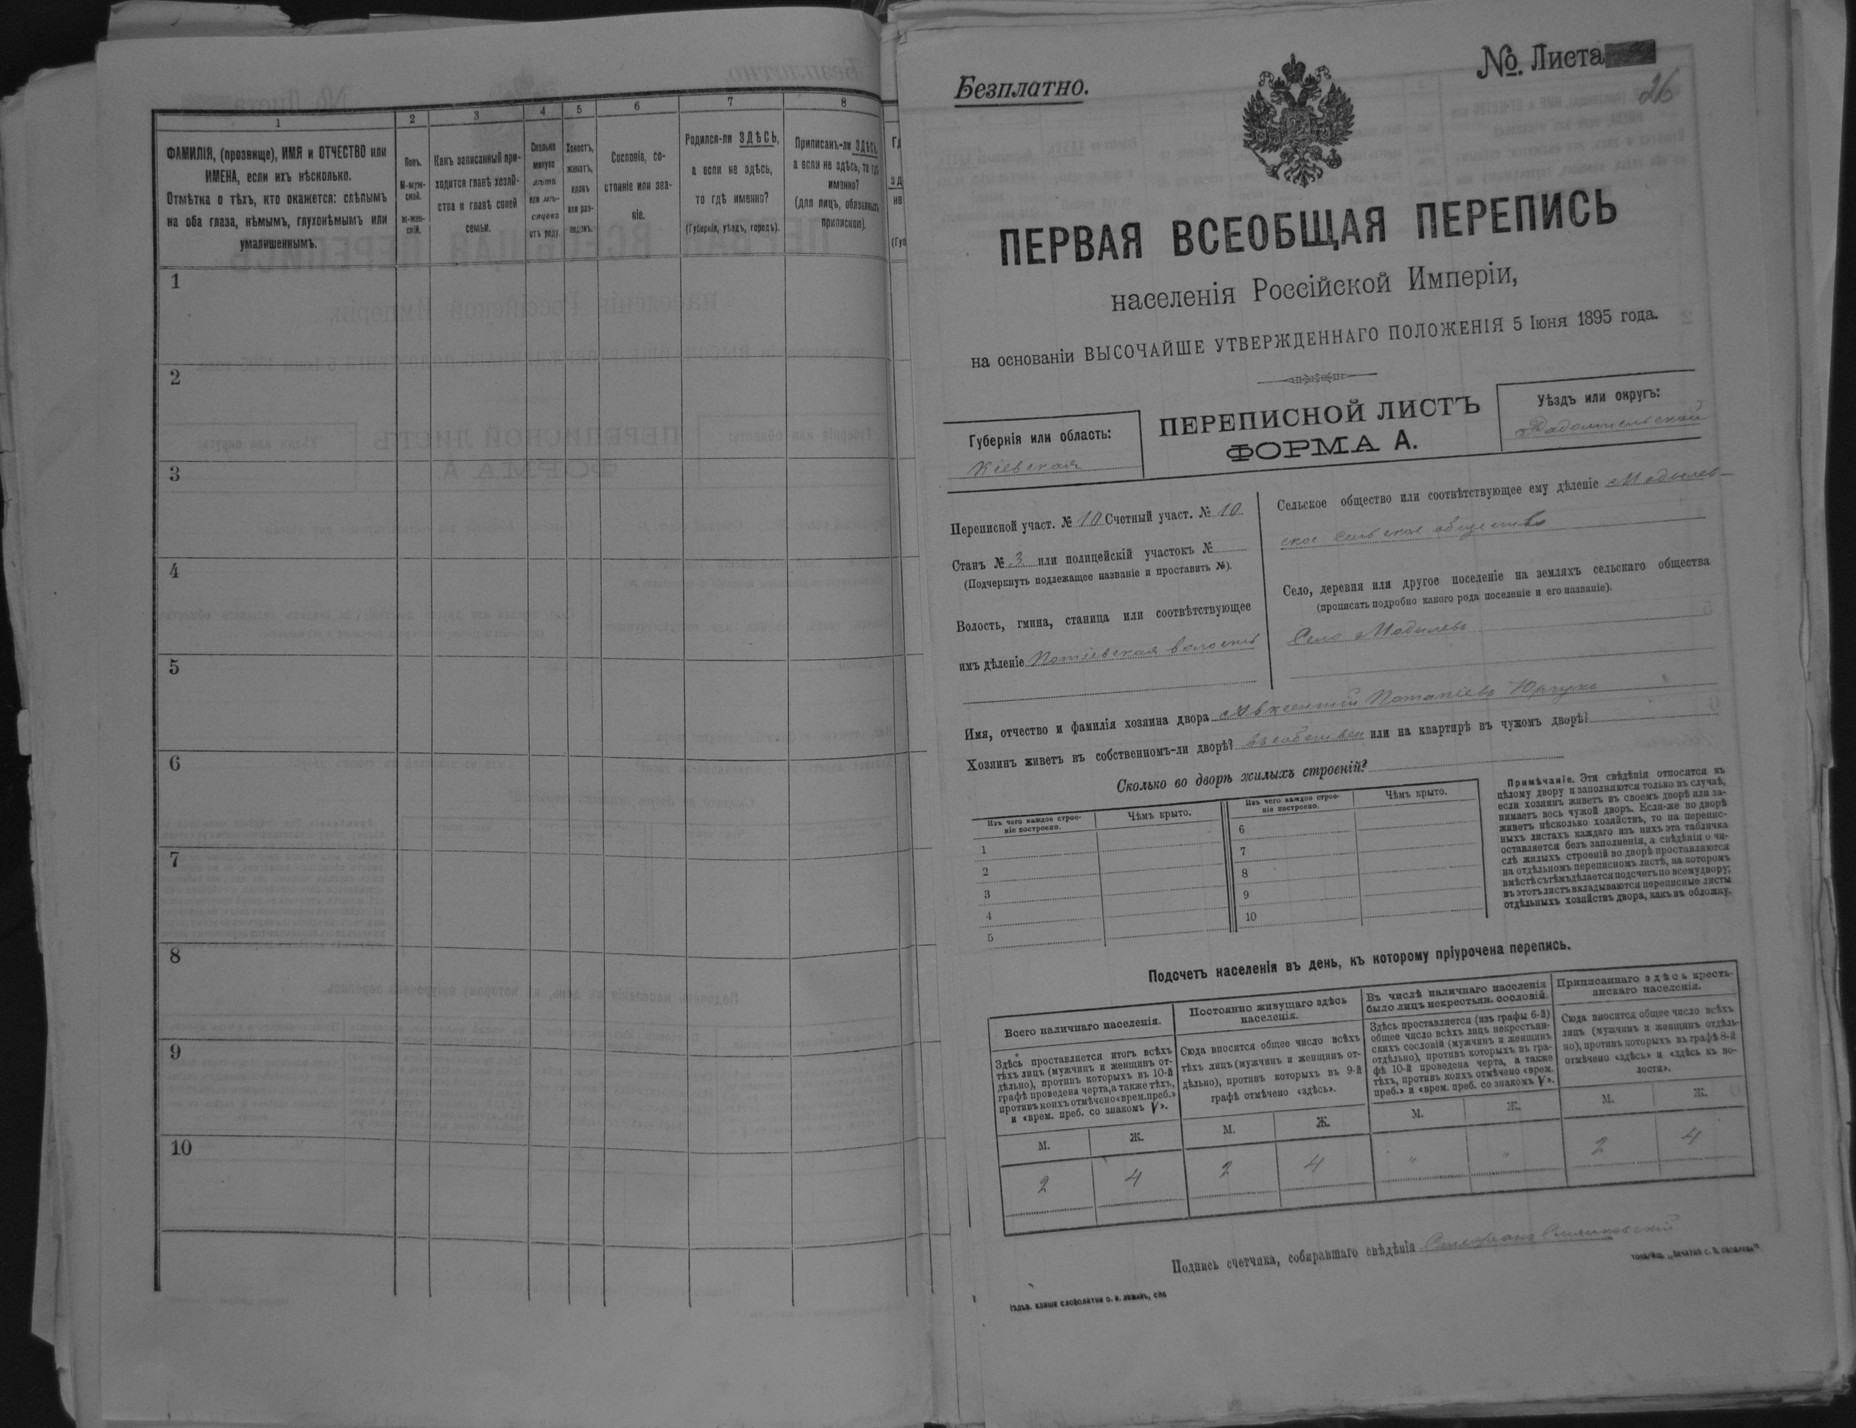 1
2
3
4
5
6
7
8
ФАМИЛІЯ, (прозвище), ИМЯ и ОТЧЕСТВО или
ИМЕНА, если ихъ нѣсколько.
Отмѣтка о тѣхъ, кто окажется: слѣпымъ
на оба глаза, нѣмымъ, глухонѣмымъ или
умалишеннымъ.
Полъ.
М-муж-
ской.
Ж-жен-
скій.
Какъ записанный при-
ходится главѣ хозяй-
ства и главѣ своей
семьи.
Сколько
минуло
лѣтъ
или мѣ-
сяцевъ
отъ роду.
Холостъ,
женатъ,
вдовъ
или раз-
веденъ.
Сословіе, со-
стояніе или зва-
ніе.
Родился-ли ЗДѢСЬ,
а если не здѣсь,
то гдѣ именно?
(Губернія, уѣздъ, городъ).
Приписанъ-ли ЗДѢСЬ,
а если не здѣсь, то гдѣ
именно?
(для лицъ, обязанныхъ
припискою).
1
2
3
4
5
6
7
8
9
10
Безплатно.
№. Листа
26
ПЕРВАЯ ВСЕОБЩАЯ ПЕРЕПИСЬ
населенія Россійской Имперіи,
на основаніи ВЫСОЧАЙШЕ УТВЕРЖДЕННАГО ПОЛОЖЕНІЯ 5 Іюня 1895 года.
Губернія или область:
Кіевская
ПЕРЕПИСНОЙ ЛИСТЪ
ФОРМА А.
Уѣздъ или округъ:
Радомысльскій
Переписной участ. № 10 Счетный участ. № 10
Станъ № 3 или полицейскій участокъ №
(Подчеркнуть подлежащее названіе и проставить №).
Волость, гмина, станица или соотвѣтствующее
имъ дѣленіе Потіевская волость
Сельское общество или соотвѣтствующее ему дѣленіе
ское сельское общество
Село, деревня или другое поселеніе на земляхъ сельскаго общества
(прописать подробно какого рода поселеніе и его названіе).
Село
Имя, отчество и фамилія хозяина двора Авксентій Потапіевъ
Хозяинъ живетъ въ собственномъ-ли дворѣ? въ собствен или на квартирѣ въ чужомъ дворѣ?
Сколько во дворѣ жилыхъ строеній?
Изъ чего каждое строе-
ніе построено.
Чѣмъ крыто.
1
2
3
4
5
Изъ чего каждое строе-
ніе построено.
Чѣмъ крыто.
6
7
8
9
10
Примѣчаніе. Эти свѣдѣнія относятся къ
цѣлому двору и заполняются только въ случаѣ,
если хозяинъ живетъ въ своемъ дворѣ или за-
нимаетъ весь чужой дворъ. Если-же во дворѣ
живетъ нѣсколько хозяйствъ, то на перепис-
ныхъ листахъ каждаго изъ нихъ эта табличка
оставляется безъ заполненія, а свѣдѣнія о чи-
слѣ жилыхъ строеній во дворѣ проставляются
на отдѣльномъ переписномъ листѣ, на которомъ
вмѣстѣ съ тѣмъ дѣлается подсчетъ по всему двору;
въ этотъ листъ вкладываются переписные листы
отдѣльныхъ хозяйствъ двора, какъ въ обложку.
Подсчетъ населенія въ день, къ которому пріурочена перепись.
Всего наличнаго населенія.
Здѣсь проставляется итогъ всѣхъ
тѣхъ лицъ (мужчинъ и женщинъ от-
дѣльно), противъ которыхъ въ 10-й
графѣ проведена черта, а также тѣхъ,
противъ коихъ отмѣчено «врем. преб.»
и «врем. преб. со знакомъ V».
М.
Ж.
2
4
Постоянно живущаго здѣсь
населенія.
Сюда вносится общее число всѣхъ
тѣхъ лицъ (мужчинъ и женщинъ от-
дѣльно), противъ которыхъ въ 9-й
графѣ отмѣчено «здѣсь».
М.
Ж.
2
4
Въ числѣ наличнаго населенія
было лицъ некрестьян. сословій.
Здѣсь проставляется (изъ графы 6-й)
общее число всѣхъ лицъ некрестьян-
скихъ сословій (мужчинъ и женщинъ
отдѣльно), противъ которыхъ въ гра-
фѣ 10-й проведена черта, а также
тѣхъ, противъ коихъ отмѣчено «врем.
преб.» и «врем. преб. со знакомъ V».
М.
Ж.
"
"
Приписаннаго здѣсь кресть-
янскаго населенія.
Сюда вносится общее число всѣхъ
лицъ (мужчинъ и женщинъ отдѣль-
но), противъ которыхъ въ графѣ 8-й
отмѣчено «здѣсь» и «здѣсь въ во-
лости».
М.
Ж.
2
4
Подпись счетчика, собиравшаго свѣдѣнія